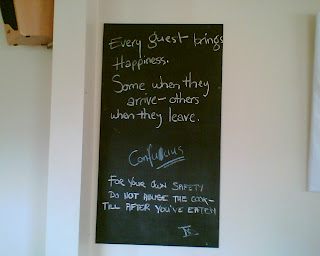 Every guest brings
Happiness.
Some when they
arrive - others
when they leave.
Confucius
FOR YOUR OWN SAFETY
DO NOT ABUSE THE COOK -
TILL AFTER YOU'VE EATEN